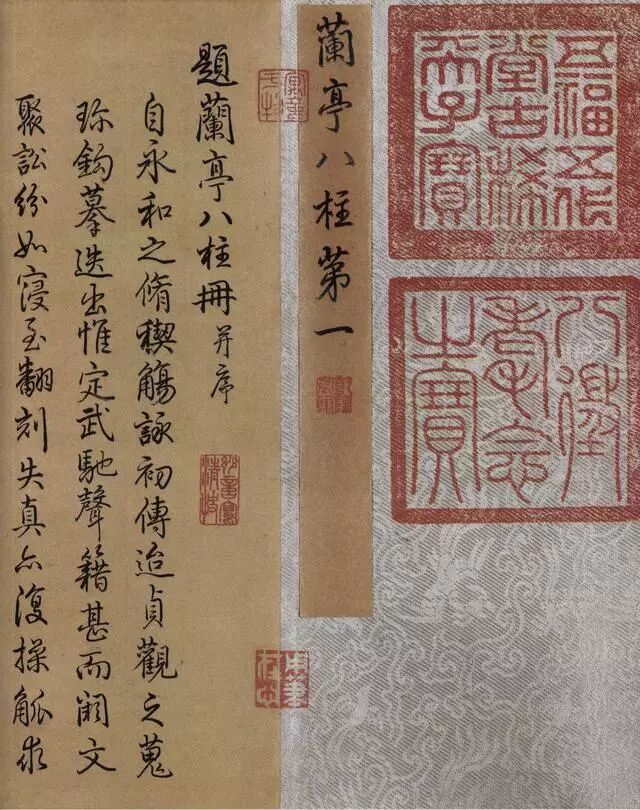 五福五代
堂古稀
天子寶
八徵
耄念
之寶
蘭亭八柱苐一
題蘭亭八柱冊并序
自永和之脩稧觴詠初傳迨貞觀之蒐
珎鈎摹迭出惟定武馳聲籍甚而闕文
聚訟紛如寖至翻刻失真亦復操觚依